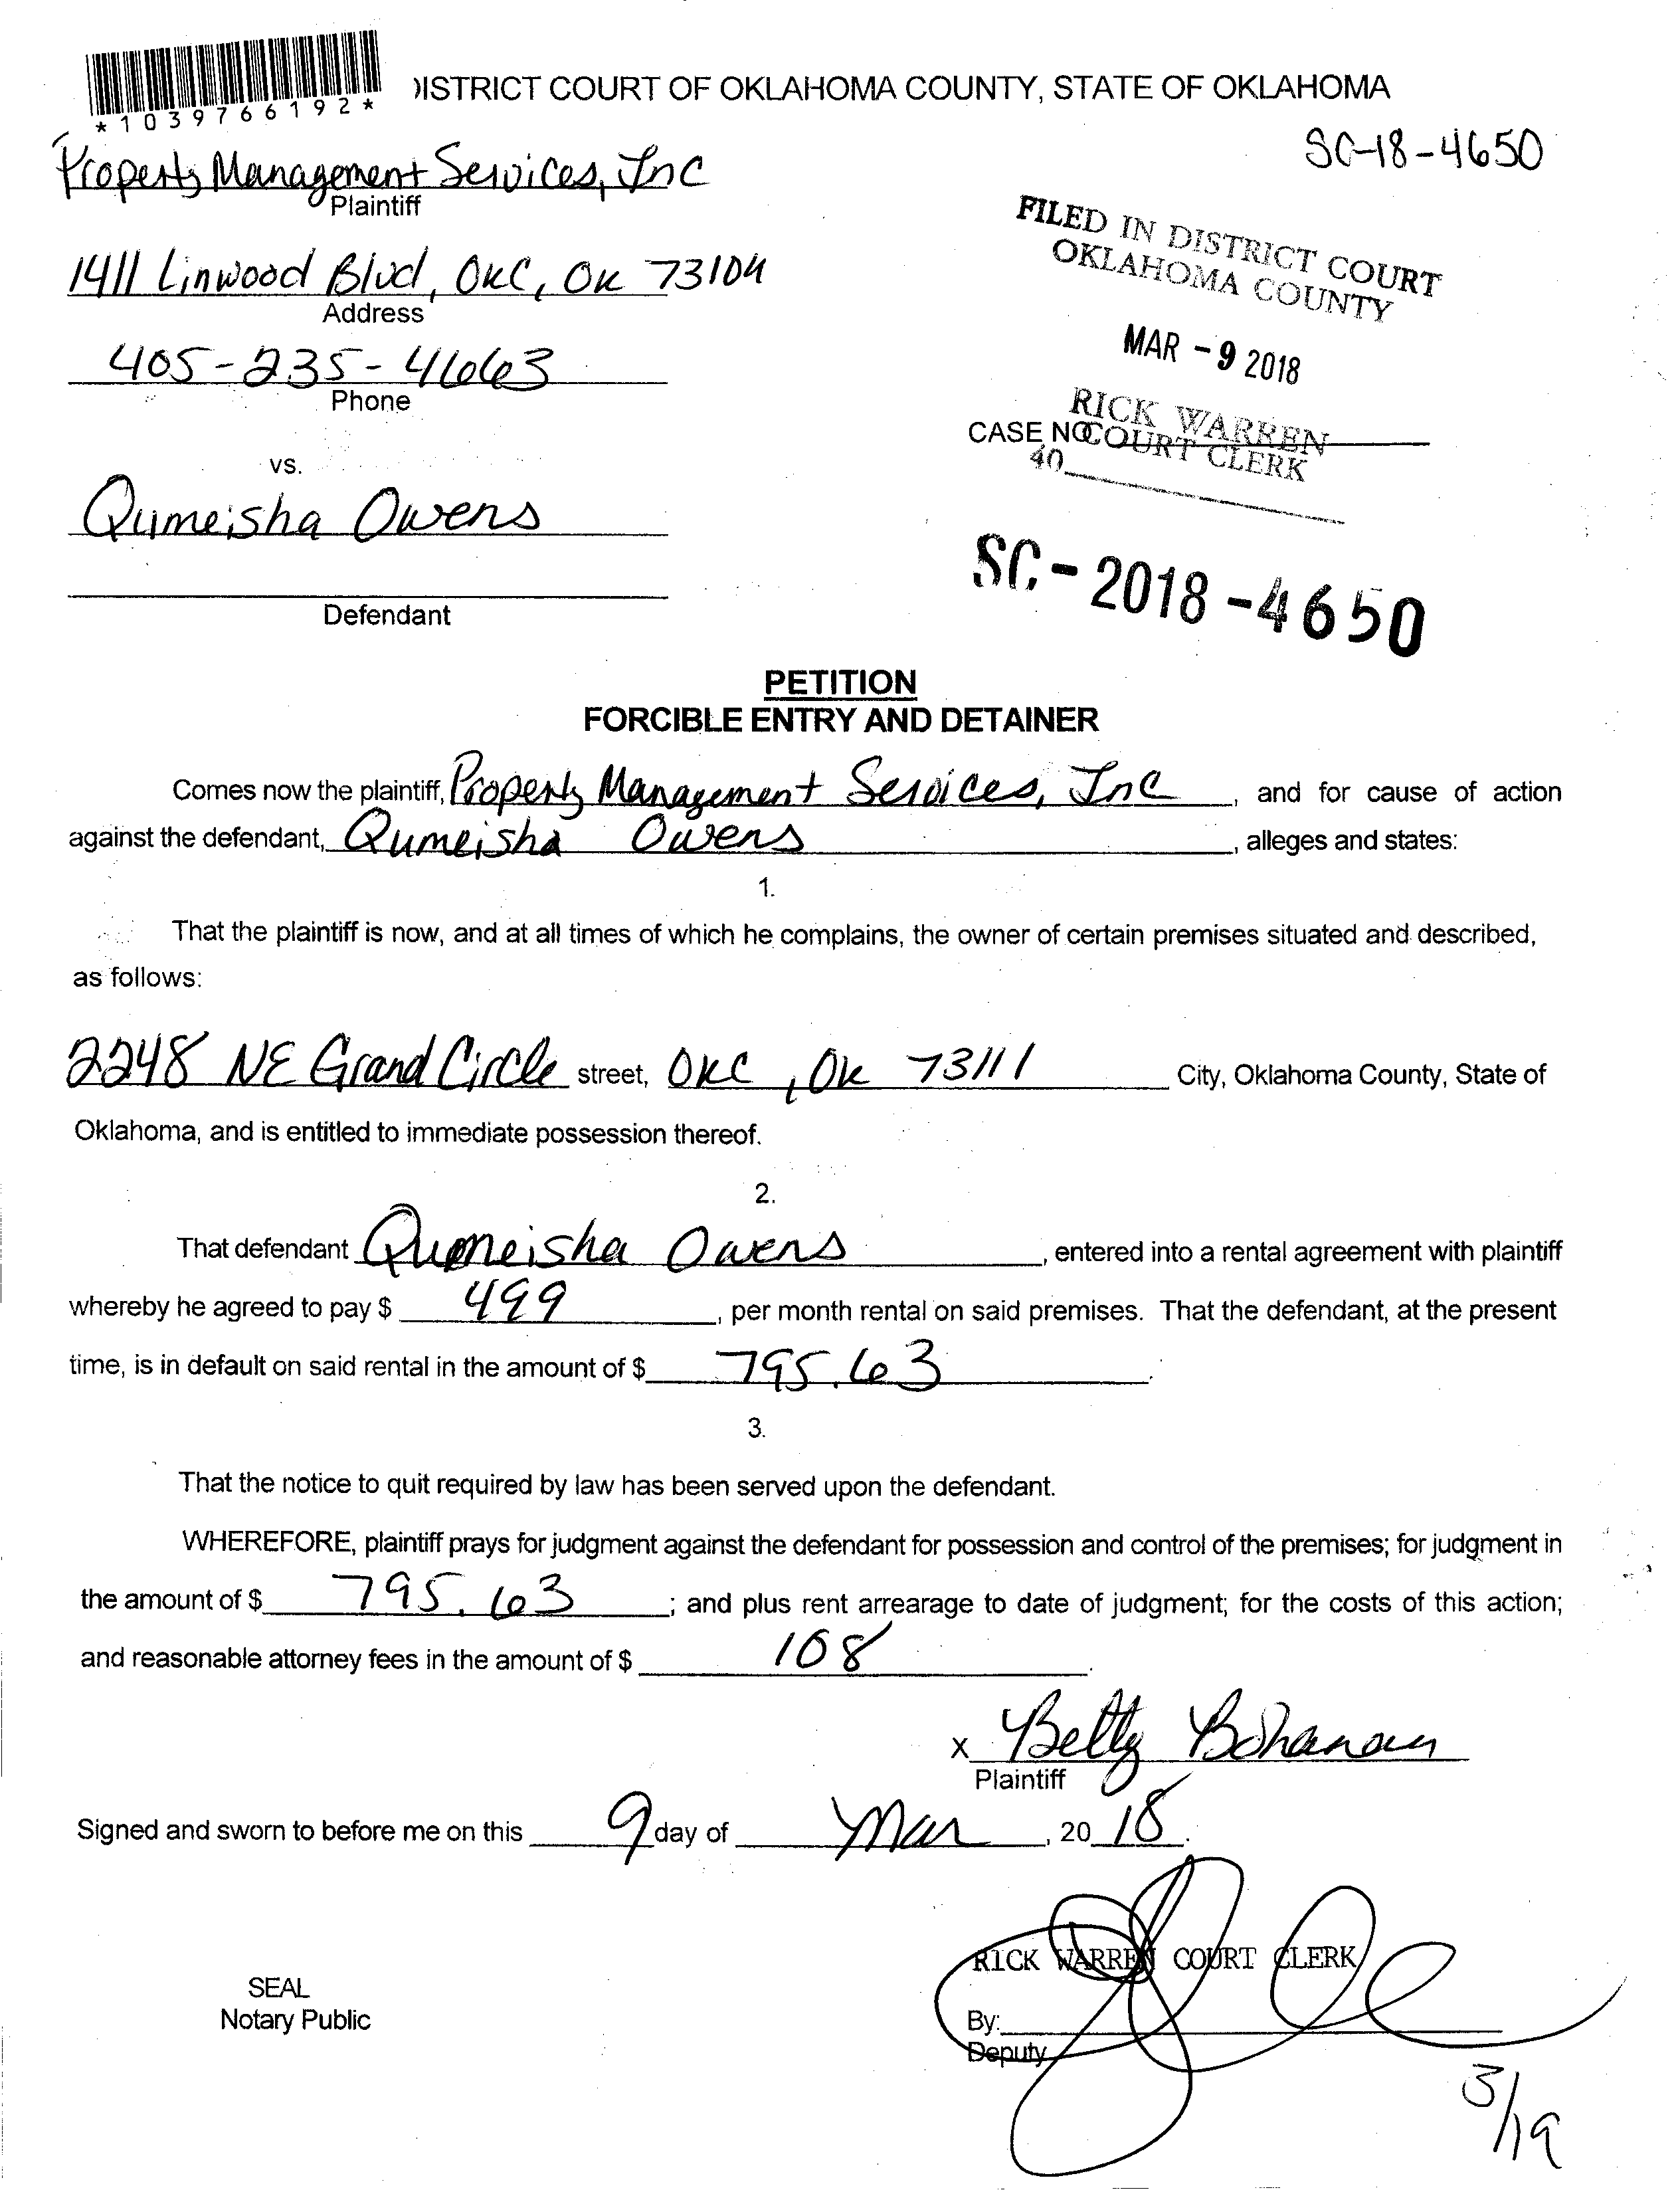 *1039766192*
DISTRICT COURT OF OKLAHOMA COUNTY, STATE OF OKLAHOMA
SC-18-4650
Property Management Services, Inc
Plaintiff
FILED IN DISTRICT COURT
OKLAHOMA COUNTY
1411 Linwood Blvd, OKC, OK 73104
Address
MAR - 9 2018
405-235-4663
Phone
RICK WARREN
COURT CLERK
CASE NO
40
vs.
Qumeisha Owens
SC - 2018 - 4650
Defendant
PETITION
FORCIBLE ENTRY AND DETAINER
Comes now the plaintiff, Property Management Services, Inc, and for cause of action
against the defendant, Qumeisha Owens, alleges and states:
1.
That the plaintiff is now, and at all times of which he complains, the owner of certain premises situated and described,
as follows:
2248 NE Grand Circle street, OKC, OK 73111 City, Oklahoma County, State of
Oklahoma, and is entitled to immediate possession thereof.
2.
That defendant Qumeisha Owens, entered into a rental agreement with plaintiff
whereby he agreed to pay $ 499, per month rental on said premises. That the defendant, at the present
time, is in default on said rental in the amount of $ 795.63.
3.
That the notice to quit required by law has been served upon the defendant.
WHEREFORE, plaintiff prays for judgment against the defendant for possession and control of the premises; for judgment in
the amount of $ 795.63; and plus rent arrearage to date of judgment; for the costs of this action;
and reasonable attorney fees in the amount of $ 108.
X Betty Bohanan
Plaintiff
Signed and sworn to before me on this 9 day of Mar, 2018.
RICK WARREN COURT CLERK
SEAL
Notary Public
By:
Deputy
3/19